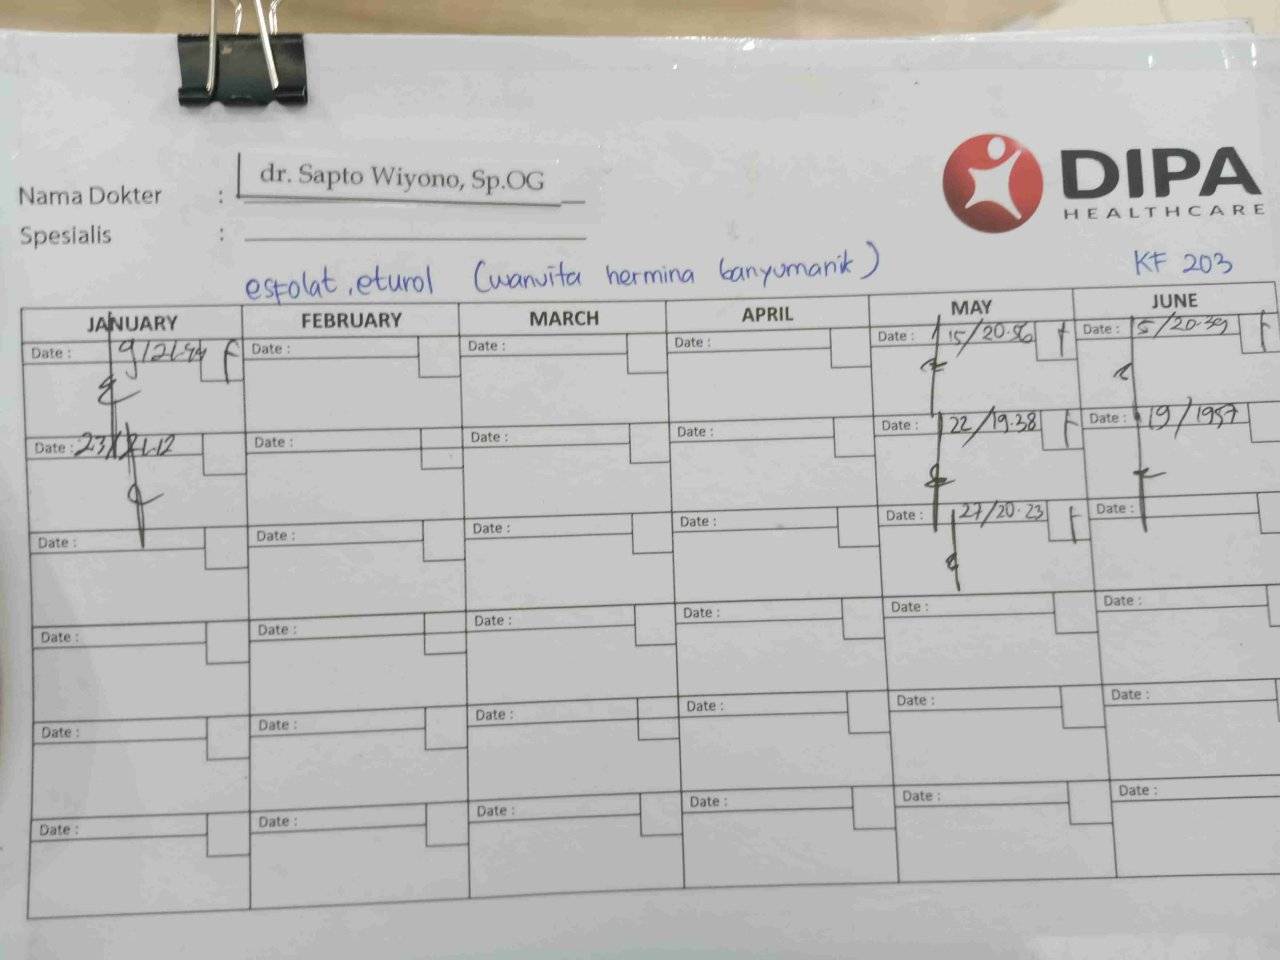 DIPA
HEALTHCARE
Nama Dokter : dr. Sapto Wiyono, Sp.OG
Spesialis :
esfolat, eturol (wanvita hermina banyumanik) KF 203
JANUARY FEBRUARY MARCH APRIL MAY JUNE
Date : 9/21.44 Date : Date : Date : Date : 15/20.56 Date : 5/20.39
Date : 23/21.12 Date : Date : Date : Date : 22/19.38 Date : 19/1957
Date : Date : Date : Date : Date : 27/20.23 Date :
Date : Date : Date : Date : Date : Date :
Date : Date : Date : Date : Date : Date :
Date : Date : Date : Date : Date : Date :